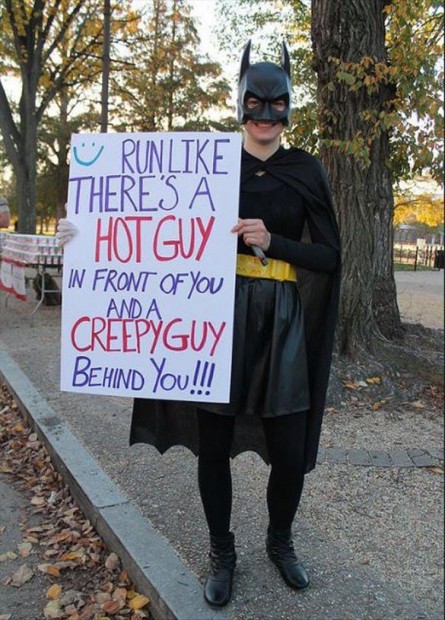 RUN LIKE
THERE'S A
HOT GUY
IN FRONT OF YOU
AND A
CREEPY GUY
BEHIND YOU!!!